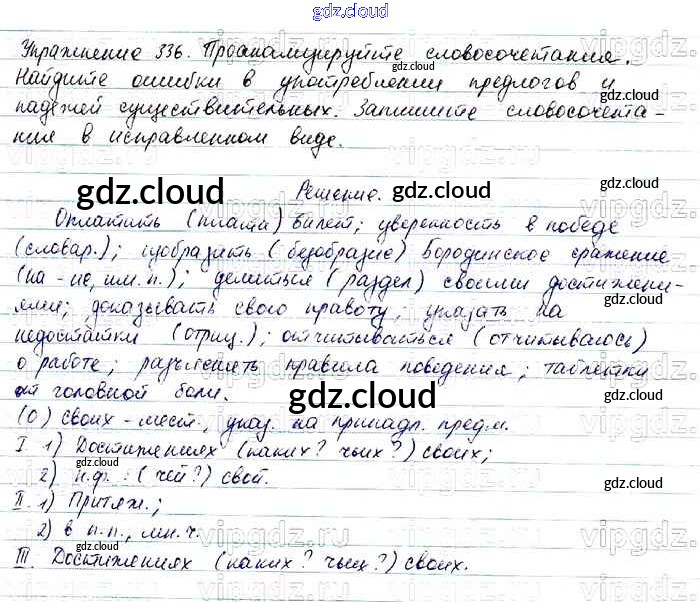 gdz.cloud
Упражнение 336. Проанализируйте словосочетания.
Найдите ошибки в употреблении предлогов и
падежей существительных. Запишите словосочета-
ния в исправленном виде.
Решение.
Оплатить (плата) билет; уверенность в победе
(словар.); изобразить (безобразие) Бородинское сражение
(на -ие, им. п.); делиться (раздел) своими достижени-
ями; доказывать свою правоту; указать на
недостатки (отриц.); отчитываться (отчитываюсь)
о работе; разъяснять правила поведения; таблетки
от головной боли.
(О) своих - мест., указ. на принадл. предм.
I. 1) Достижениях (каких? чьих?) своих;
2) н.ф.: (чей?) свой.
II. 1) Притяж.;
2) в п.п., мн.ч.
III. Достижениях (каких? чьих?) своих.